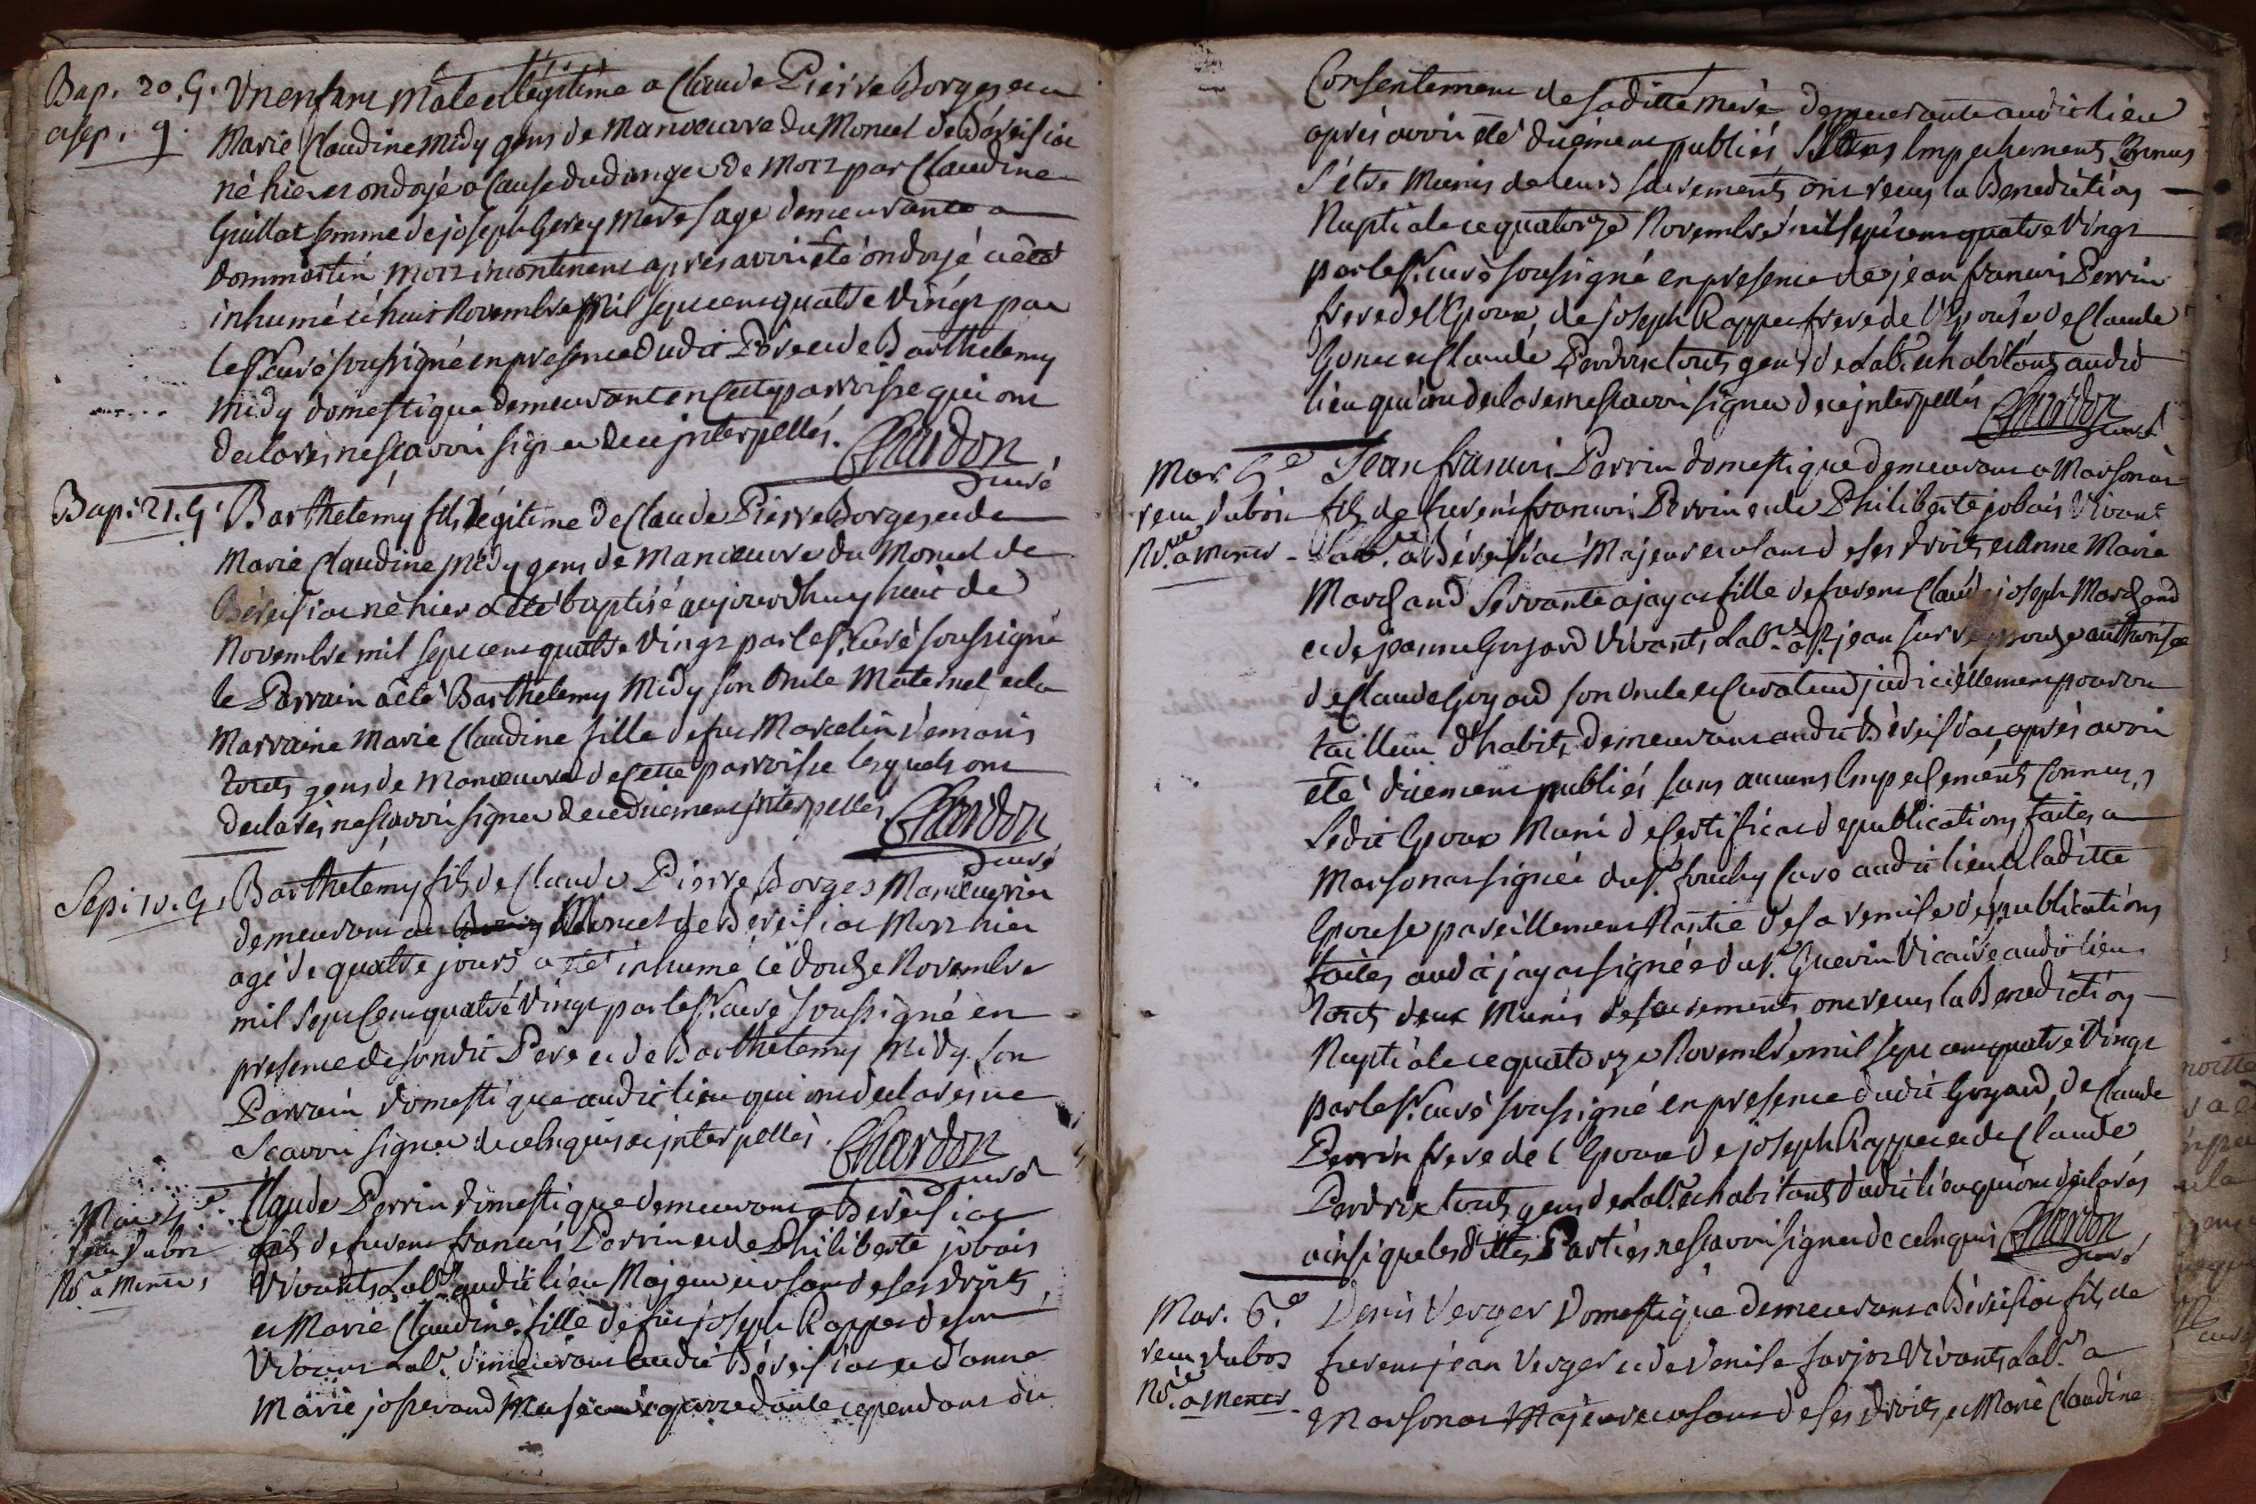 Bap. 20. G.
asep. 9.
Un enfant Mâle et légitime a Claude Pierre Borges et a
Marie Claudine Midy gens de Manœuvre du Moncel de Béreisiat
né hier et ondoyé a Cause du danger de Mort par Claudine
Guillot femme de joseph Gerey Mere sage demeurante a
dommartin mort incontinent apres avoir été ondoyé a été
inhumé cé huit Novembre Mil sept cent quatre Vingt par
le Sr. Curé soussigné en presence dudit Pére et de Barthelemy
Midy domestique demeurant en Cette parroisse qui ont
declarés ne scavoir signer de ce jnterpellés. Chardon
curé
Bap: 21. G.
Barthelémy fils légitime de Claude Pierre Borges et de
Marie Claudine Midy gens de Manœuvre du Moncel de
Béreisiat né hier a été baptisé aujourdhuy huit de
Novembre mil sept cent quatre Vingt par le Sr. Curé soussigné
le Parrain a été Barthelemy Midy son Oncle Maternel et la
Marraine Marie Claudine fille de fut Marcelin Vemoris
touts gens de Manœuvre de Cette parroisse lesquels ont
declarés ne scavoir signer de ce duement jnterpellés Chardon
curé
Sep: 10. G.
Barthelémy fils de Claude Pierre Borges Manœuvrier
demeurant au Moncel de Béreisiat Mort hier
agé de quatre jours a été inhumé cé douze Novembre
mil Sept Cent quatre Vingt par le Sr. Curé soussigné en
presence de sondit Pere et de Barthelemy Midy son
Parrain domestique audit lieu qui ont declarés ne
Scavoir signer de ce enquis et jnterpellés. Chardon
curé
Mar. 4e.
remis
Nd. a
Claude Perrin domestique demeurant a Béreisiat
fils de furent francois Perrin et de Philiberte jobais
Vivants Labrs. audit lieu Majeur et usant de ses droits
et Marie Claudine fille de fut joseph Rapper de son
Vivant Labr. demeurant audit Béreisiat et d'anne
Marie josserand cependant du
Consentement de saditte Mere demeurante audit lieu
après avoir été duëment publiés Sans Impechements Connus
S'étre Munis de leurs sacrements ont recus la Benediction
Nuptiale ce quatorze Novembre mil sept cent quatre Vingt
par le Sr. Curé soussigné en presence de jean francois Perrin
frere de l'Epoux, de joseph Rapper frere de l'Epouse de Claude
Gonet et Claude Perdrix touts gens de Labr. et habitants audit
lieu qui ont declarés ne scavoir signer de ce jnterpellés Chardon
curé
Mar. 5e
remis
Nd. a
Jean francois Perrin domestique demeurant a Marsonas
fils de furent francois Perrin et de Philiberte jobais Vivants
Labrs. a Béreisiat Majeur et usant de ses droits et Anne Marie
Marchand Servante a jayat fille de furent Claude joseph Marchand
et de jeanne Guyard Vivants Labrs. a St. jean sur authorisée
de Claude Guyard son Oncle et Curateur judiciëllement pourvu
tailleur d'habits demeurant audit Béreisiat, aprés avoir
été duëment publiés sans aucuns Impechements Connus,
Ledit Epoux Muni de Certificat de publications faites a
Marsonas signée du Sr. fouchy Curé audit lieu et laditte
Epouse pareillement Nantie de sa remise de publications
faites audit jayat signée du Sr. Guerin Vicaire audit lieu
touts deux Munis de sacrements ont recus la Benediction
Nuptiale ce quatorze Novembre mil sept cent quatre Vingt
par le Sr. Curé soussigné en presence dudit Guyard, de Claude
Perrin frere de l'Epoux de joseph Rapper et de Claude
Perdrix touts gens de Labr. et habitants dudit lieu qui ont declarés
ainsi que les dittes Parties ne scavoir signer de ce enquis Chardon
curé
Mar. 6e
remis
Nd. a
Denis Verger Domestique demeurant a Béreisiat fils de
furent jean Verger et de Denise farjot Vivants Labrs. a
Marsonas Majeur et usant de ses droits, et Marie Claudine